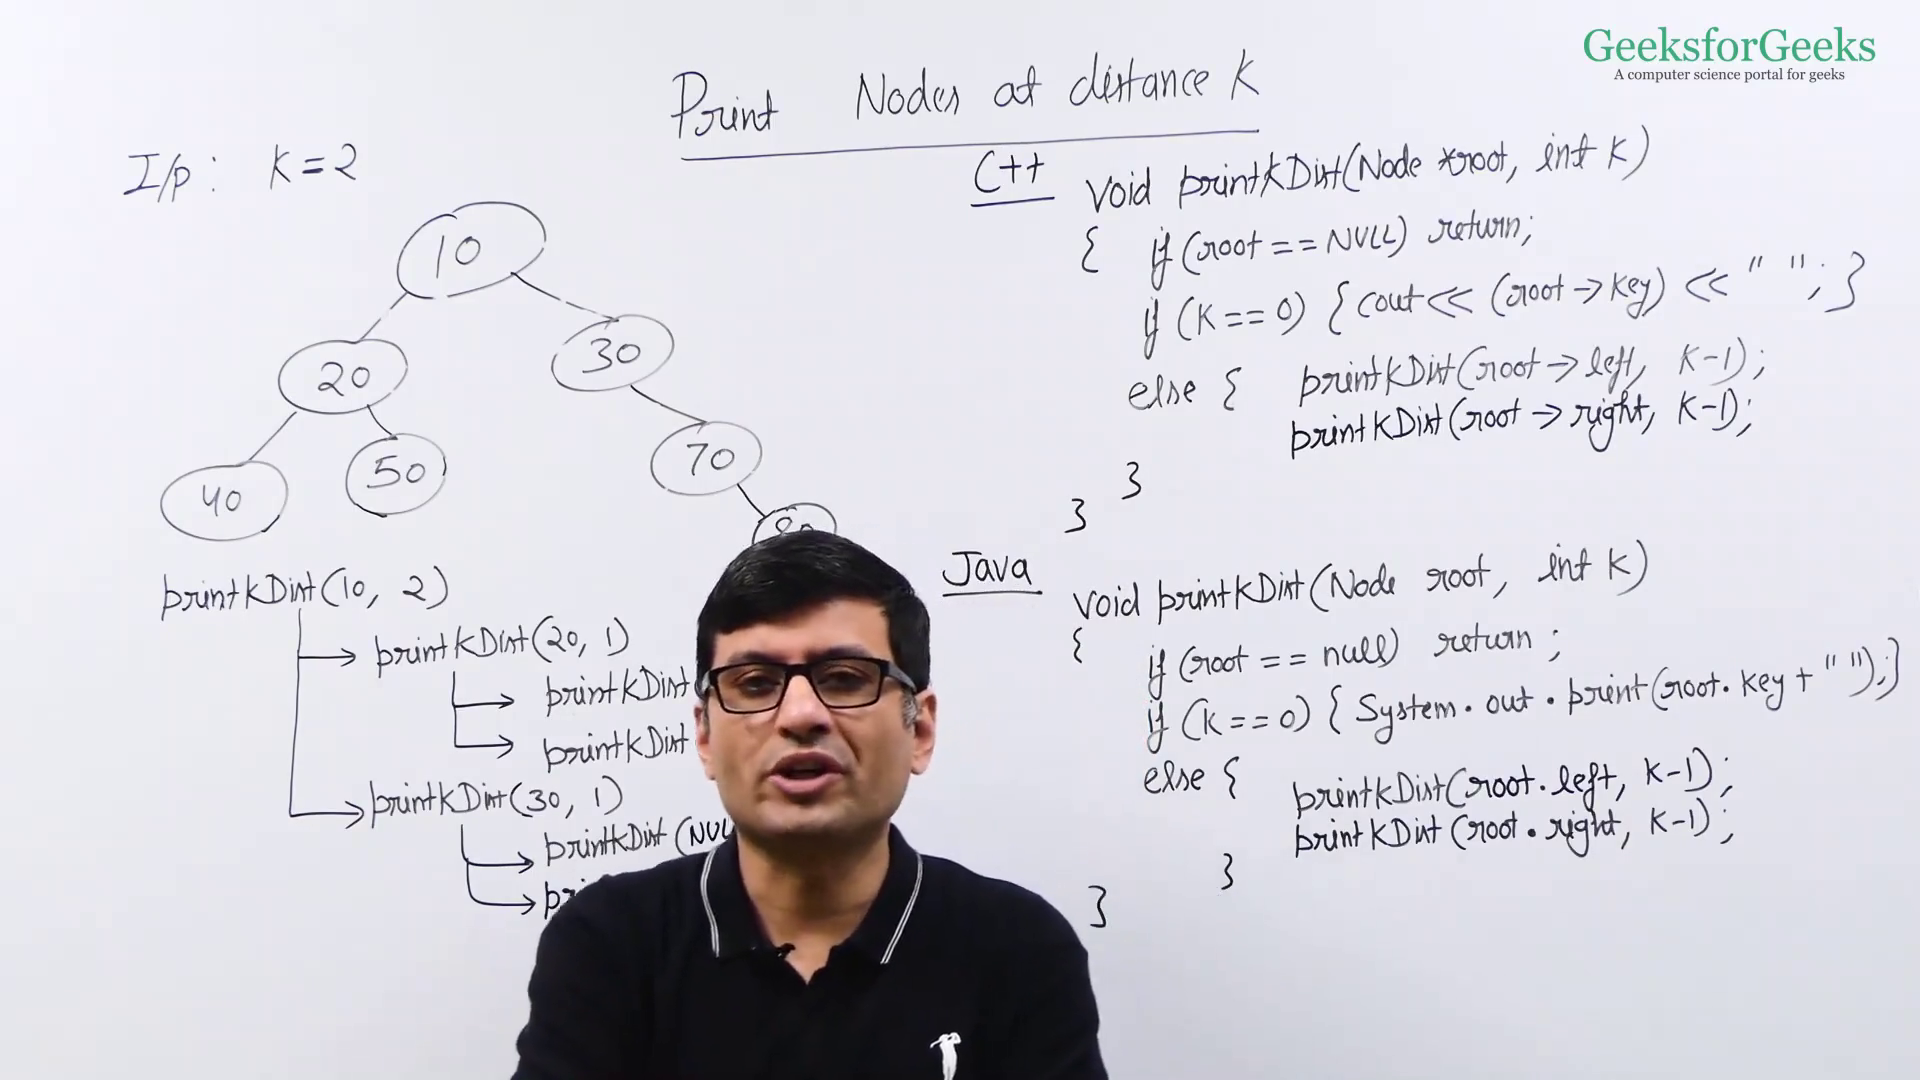 GeeksforGeeks
A computer science portal for geeks
Print Nodes at distance K
I/p: K=2
10
20
30
40
50
70
printKDist(10, 2)
printKDist(20, 1)
printKDist
printKDist
printKDist(30, 1)
printKDist(NUL
C++
void printKDist(Node *root, int K)
{ if (root == NULL) return;
if (K == 0) { cout << (root -> key) << " "; }
else { printKDist(root -> left, K-1);
printKDist(root -> right, K-1);
}
}
Java
void printKDist(Node root, int K)
{
if (root == null) return ;
if (K == 0) { System.out.print(root.key + " "); }
else { printKDist(root.left, K-1);
printKDist(root.right, K-1);
}
}